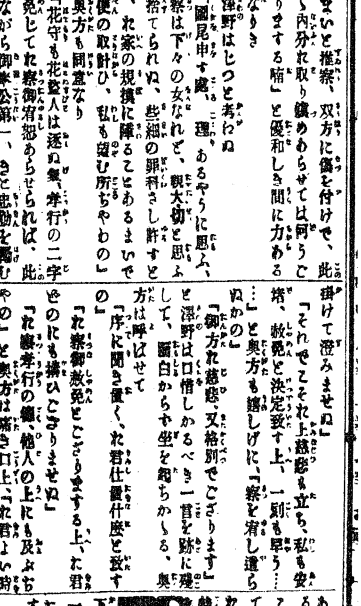 まいと推察、双方に傷を付けで、此
内分れ取り鎮めあらせては何うご
りまする喃」と優和しき間に力ある
なりき
澤野はじつと考わぬ
國尾申す處、理あるやうに思ふ、
察は下々の女なれど、親大切と思ふ
捨てられぬ、些細の罪科さし許すと
れ家の規摸に障ることあるまいで
便の取計ひ、私も望む所ぢやわの」
奥方も同意なり
「花守も花盜人は逐ぬ集、孝行の二字
免じてれ察御宥恕あらせられば、此
ながら御奉公第一、きと忠勤を勵む
掛けて澄みませぬ」
「それでこそれ上慈悲も立ち、私も安
堵、赦免と決定致す上、一刻も早う…
…」と奥方も嬉しげに、「察を宥し遣ら
ぬかの」
「御方れ慈悲、又格別でござります」
と澤野は口惜しかるべき一言を跡に殘
して、面白からず坐を起ちかゝる、奥
方は呼ばせて
「序に聞き置く、れ君仕置什麽と致す
の」
「れ察御赦免とござりまする上、れ君一
とのにも構ひござりませぬ」
「れ察孝行の德、他人の上にも及ぶぢ
やの」と奥方は痛き口上、「れ君よい時